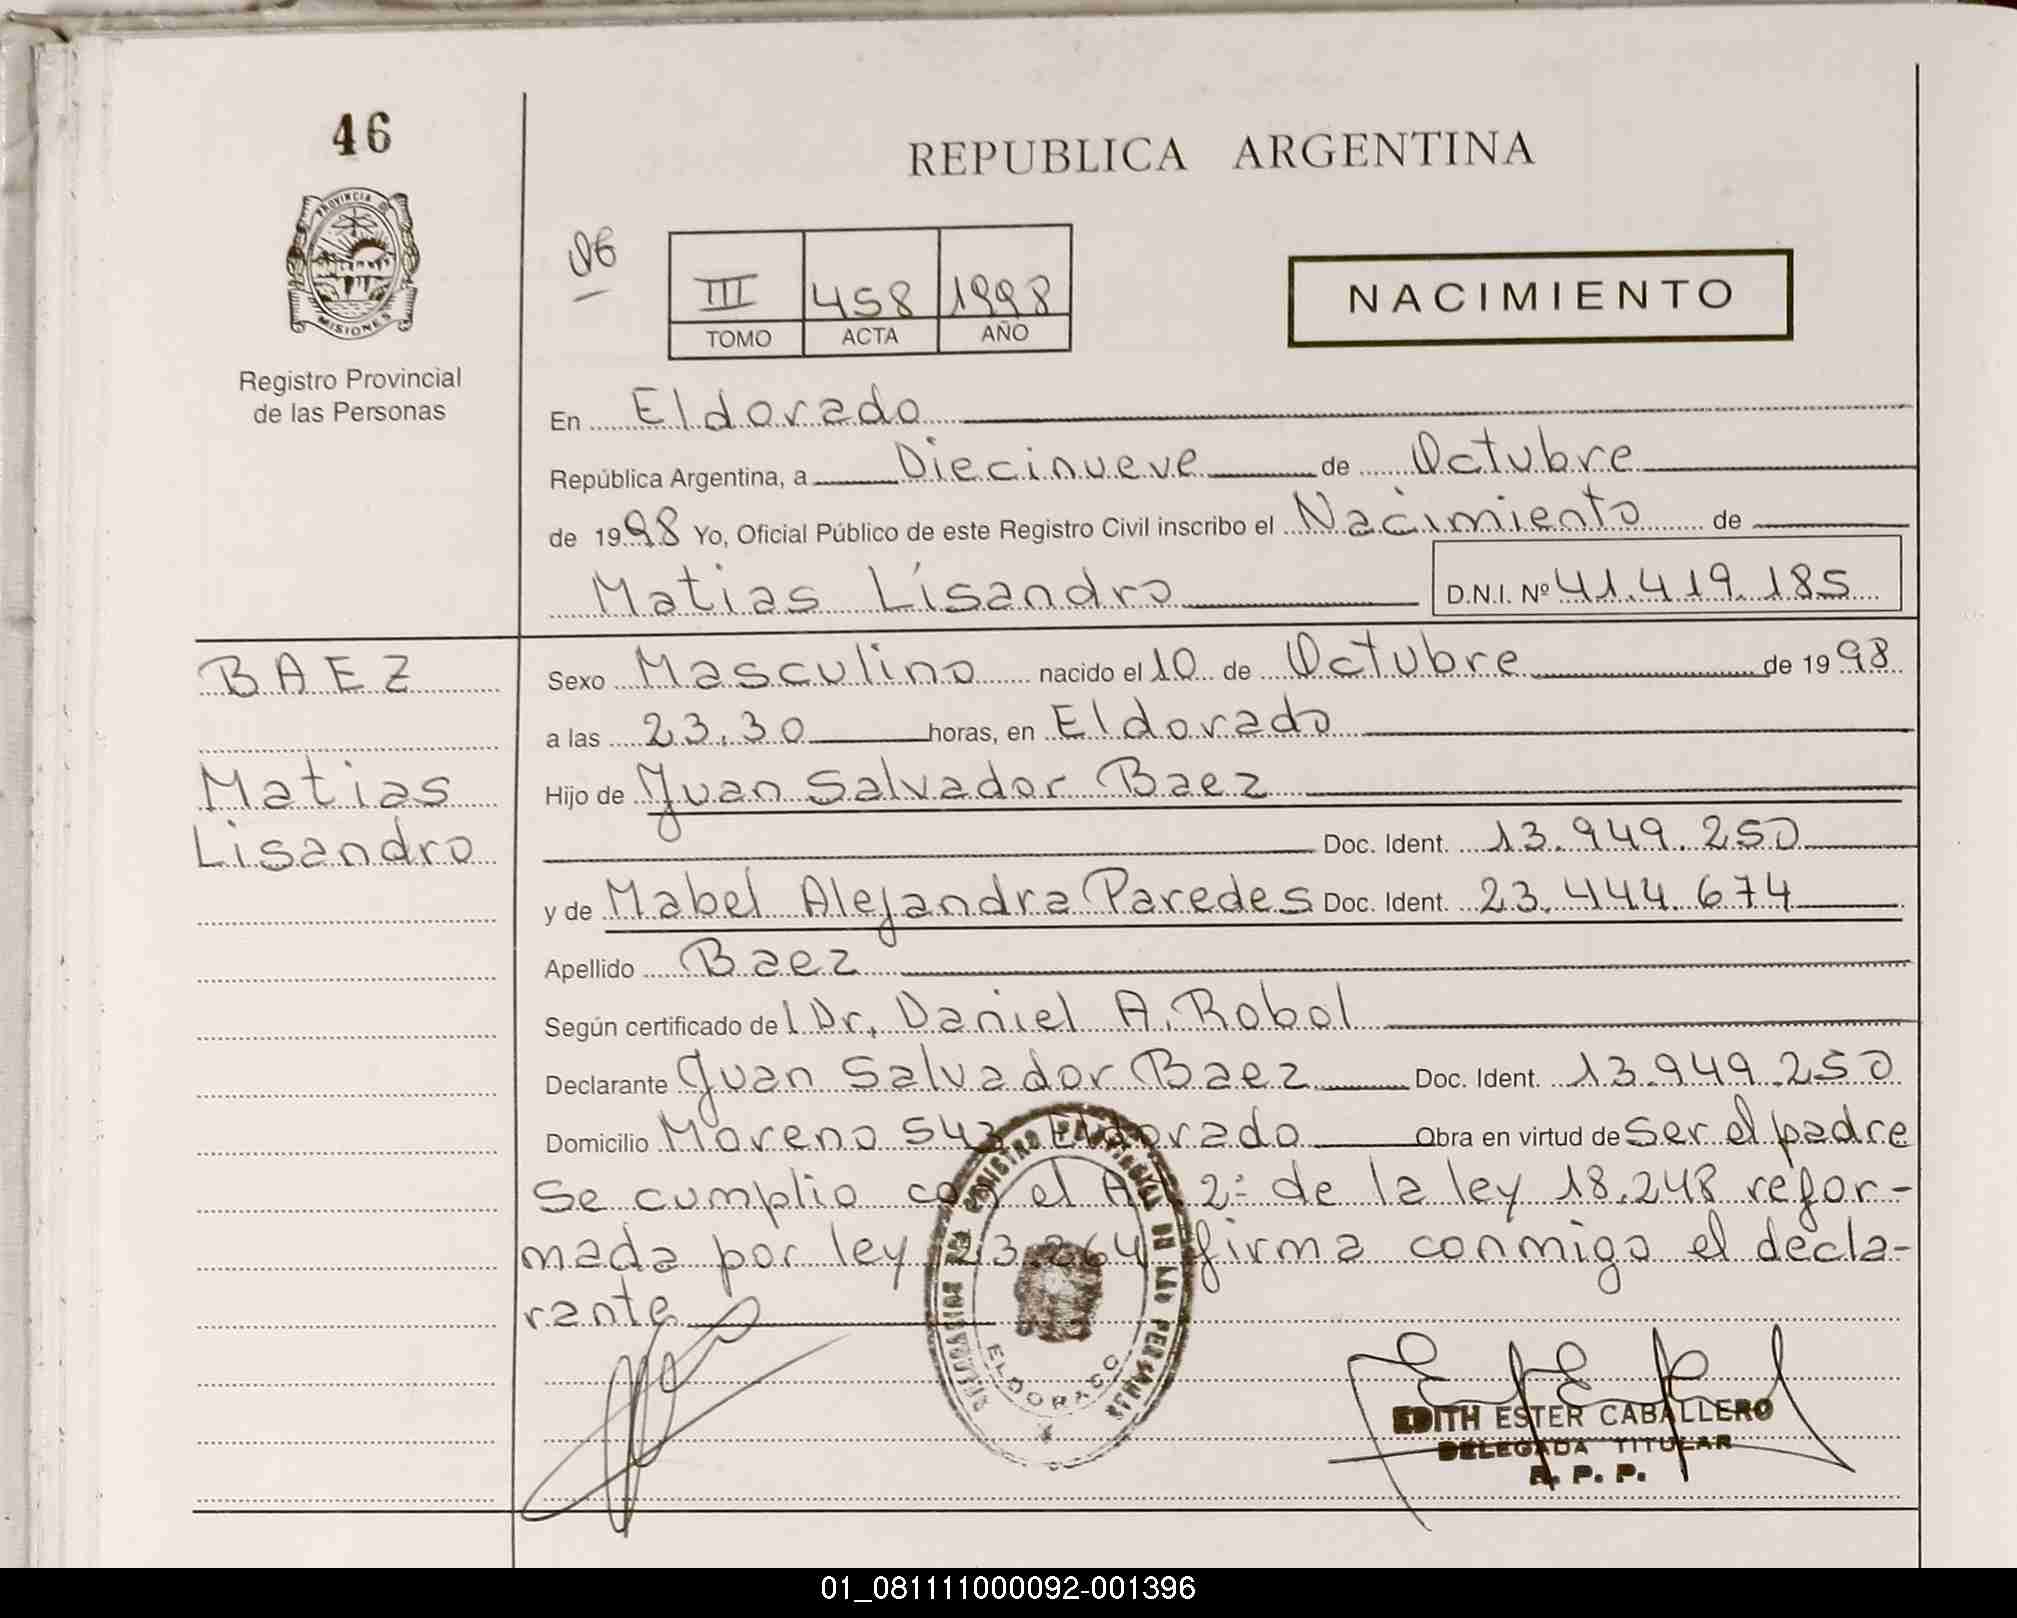 46
REPUBLICA ARGENTINA
PROVINCIA DE
MISIONES
Registro Provincial
de las Personas
06
III 458 1998
TOMO ACTA AÑO
NACIMIENTO
En Eldorado
República Argentina, a Diecinueve de Octubre
de 1998 Yo, Oficial Público de este Registro Civil inscribo el Nacimiento de
Matias Lisandro D.N.I. Nº 41.419.185
BAEZ
Matias
Lisandro
Sexo Masculino nacido el 10 de Octubre de 1998
a las 23.30 horas, en Eldorado
Hijo de Juan Salvador Baez
Doc. Ident. 13.949.250
y de Mabel Alejandra Paredes Doc. Ident. 23.444.674
Apellido Baez
Según certificado del Dr. Daniel A. Robol
Declarante Juan Salvador Baez Doc. Ident. 13.949.250
Domicilio Moreno 543 Eldorado Obra en virtud de ser el padre
Se cumplio con el A 2º de la ley 18.248 refor-
mada por ley 23.264 firma conmigo el decla-
rante
ELDORADO
EDITH ESTER CABALLERO
DELEGADA TITULAR
R. P. P.
01_081111000092-001396